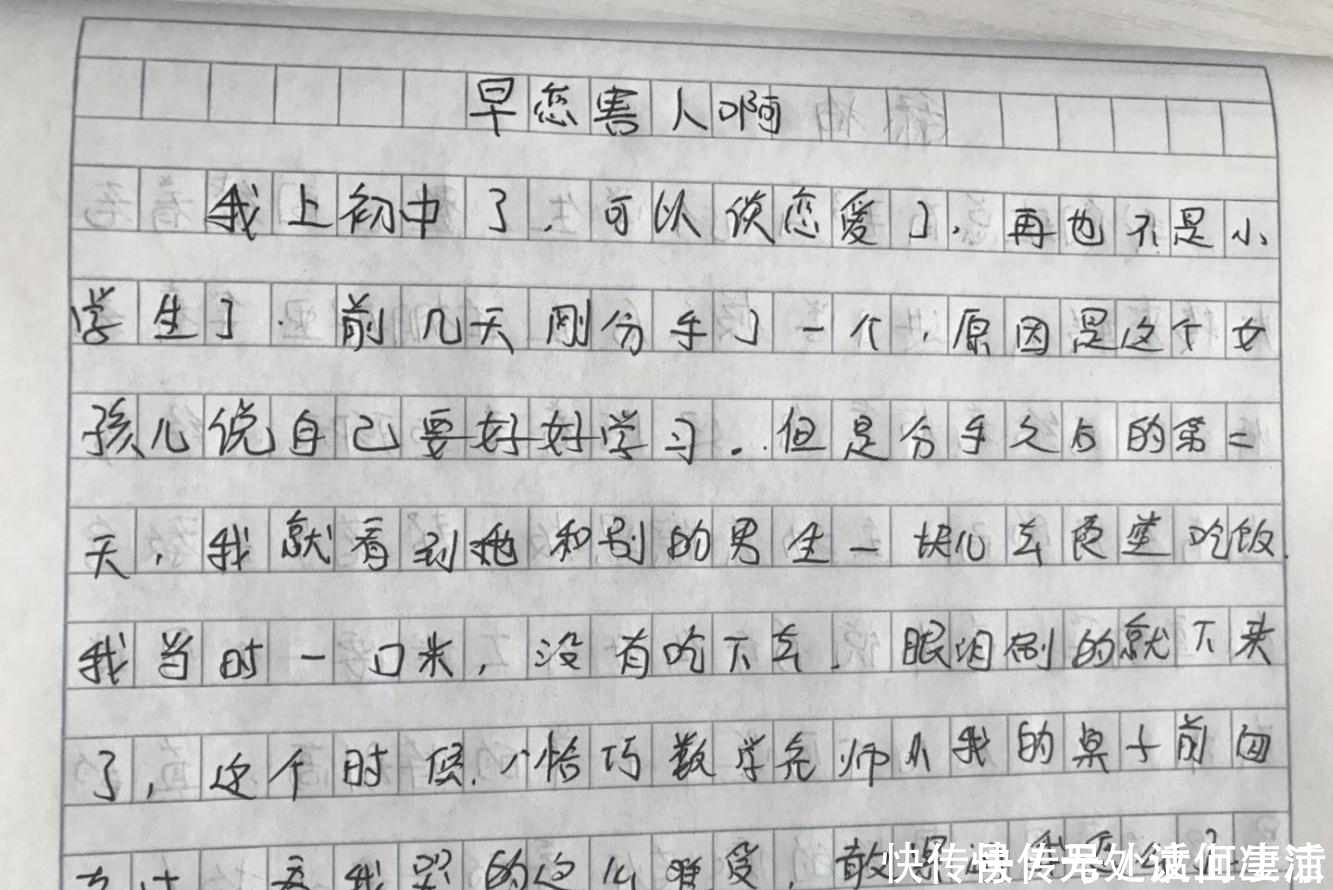 早恋害人啊
我上初中了，可以谈恋爱了，再也不是小
学生了．前几天刚分手了一个，原因是这个女
孩儿说自己要好好学习．但是分手之后的第二
天，我就看到她和别的男生一块儿去食堂吃饭．
我当时一口米，没有吃下去，眼泪刷的就下来
了，这个时候，恰巧数学老师从我的桌子前面
看我哭的这么难受，
快传